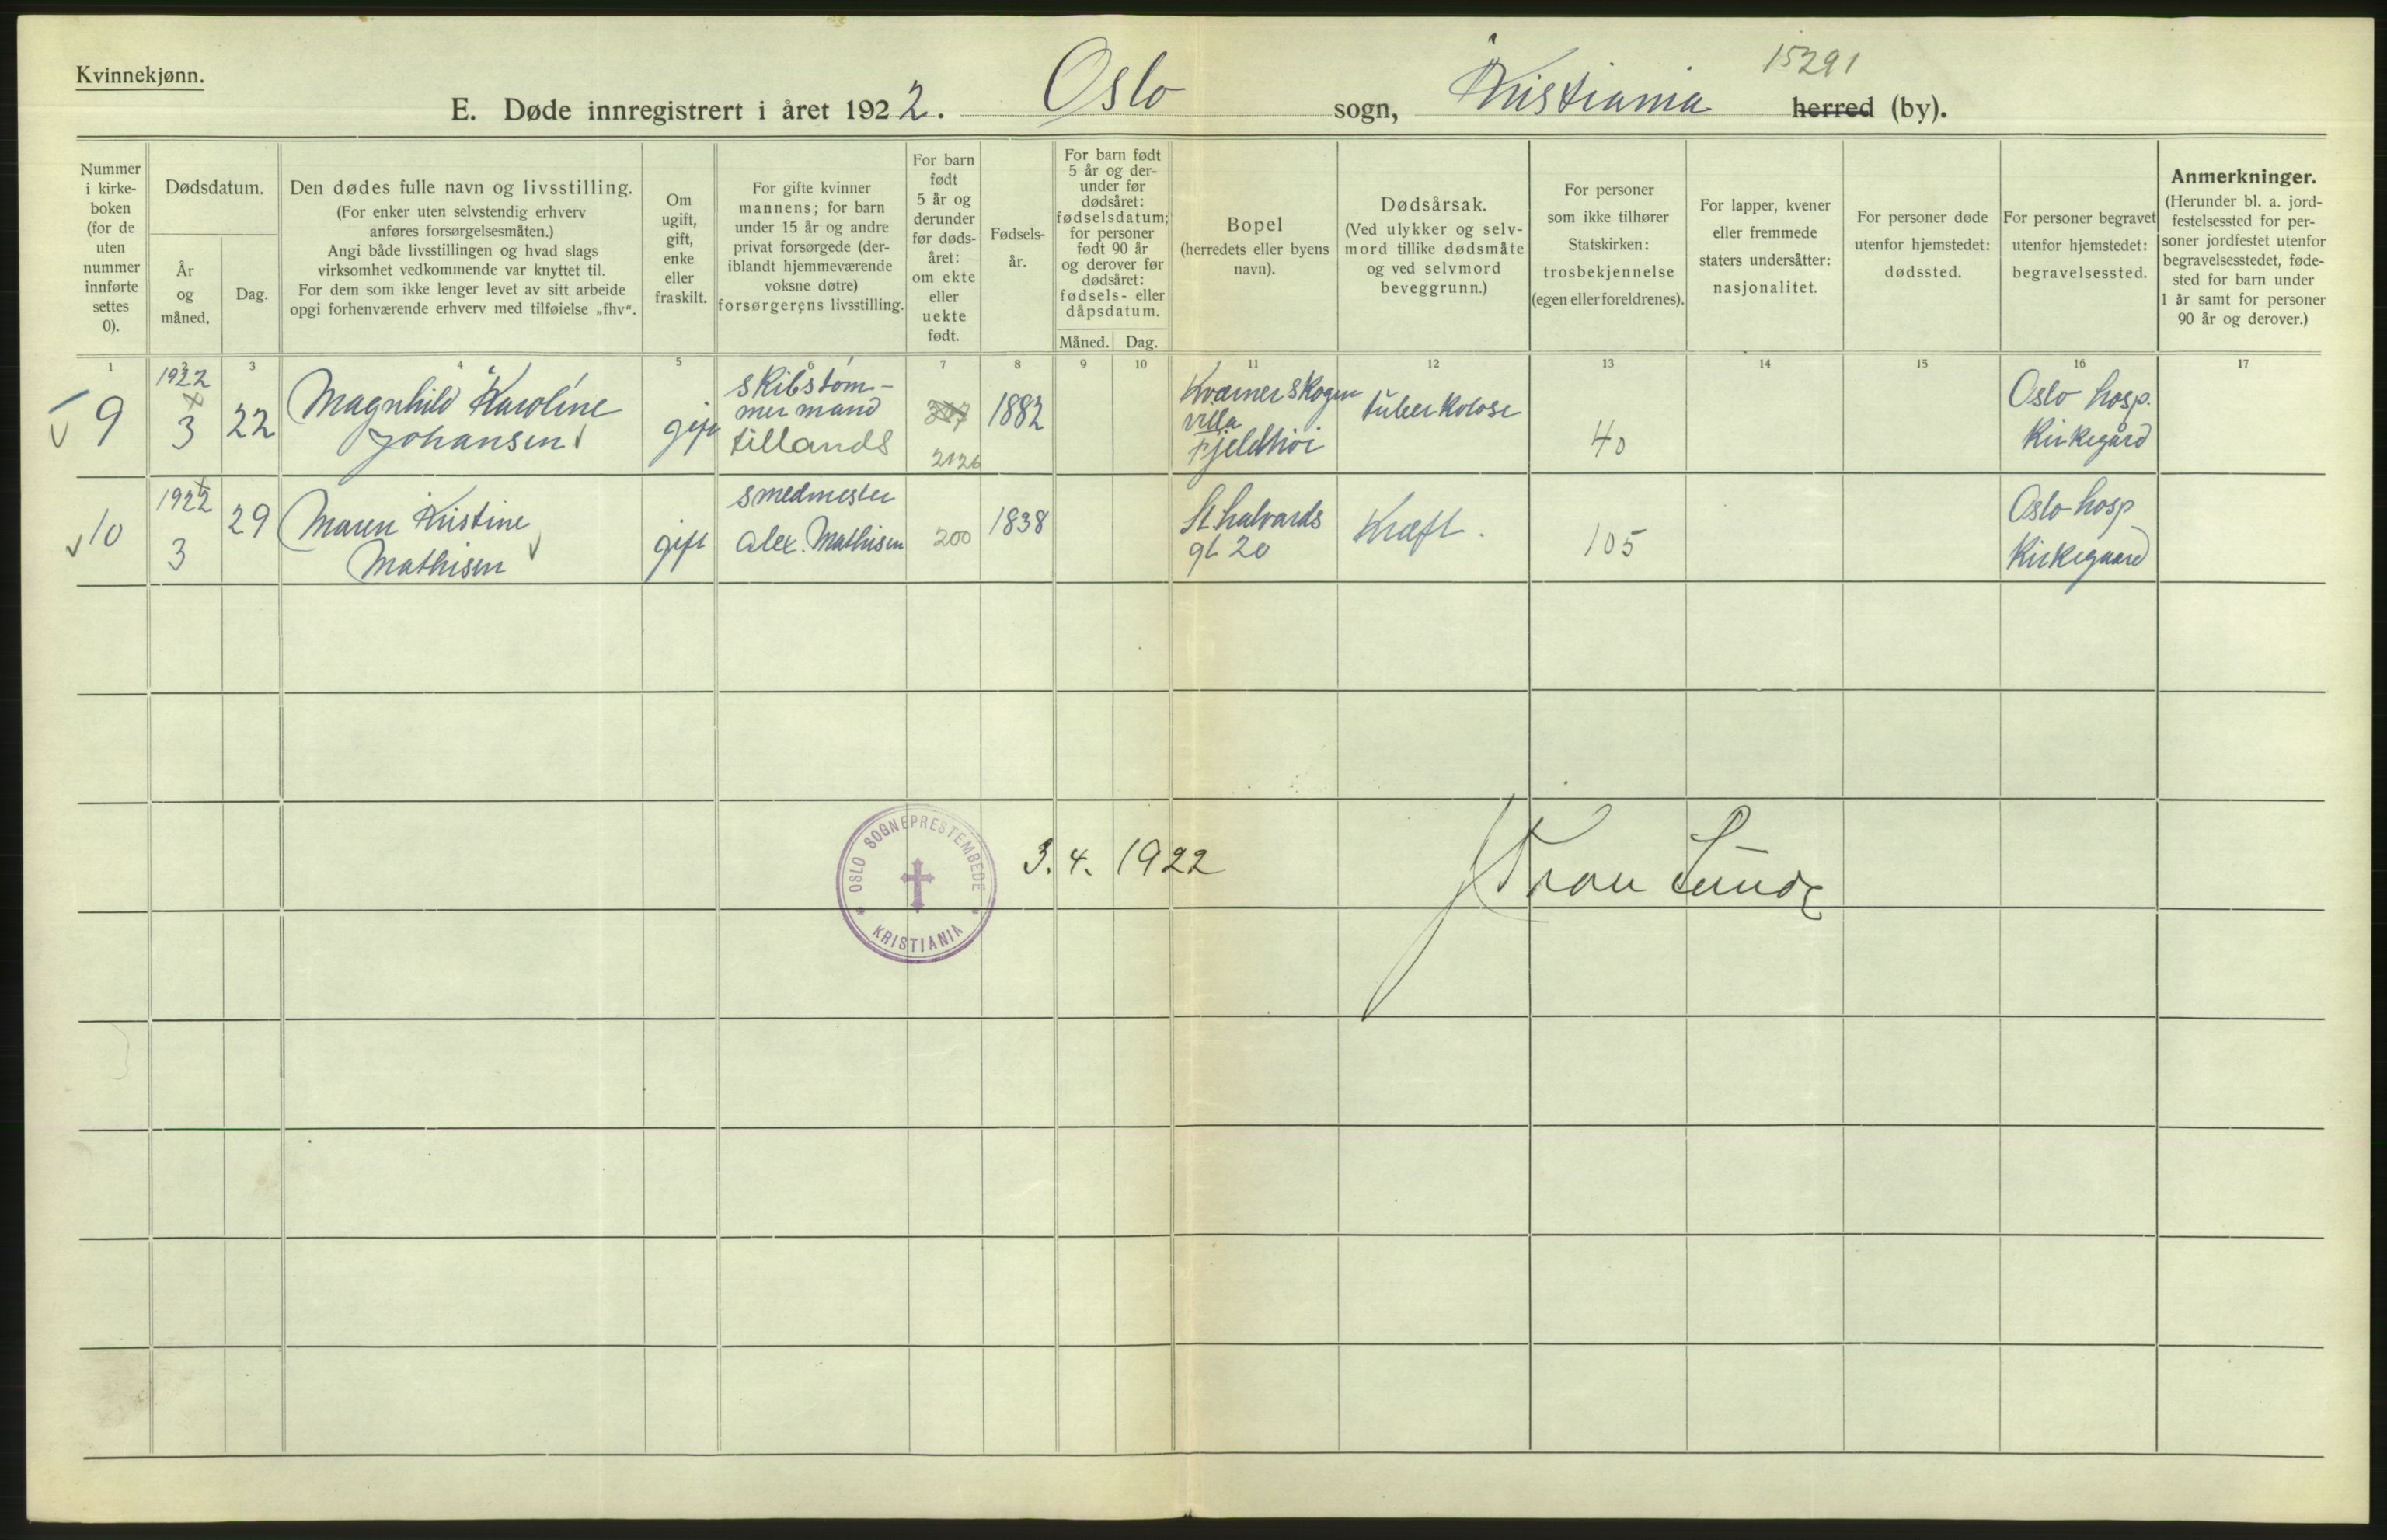 Kvinnekjønn.
15291
E. Døde innregistrert i året 1922. Oslo sogn, Kristiania herred (by).
Nummer
i kirke-
boken
(for de
uten
nummer
innførte
settes
0).
Dødsdatum.
År
og
måned.
Dag.
Den dødes fulle navn og livsstilling.
(For enker uten selvstendig erhverv
anføres forsørgelsesmåten.)
Angi både livsstillingen og hvad slags
virksomhet vedkommende var knyttet til.
For dem som ikke lenger levet av sitt arbeide
opgi forhenværende erhverv med tilføielse „fhv“.
Om
ugift,
gift,
enke
eller
fraskilt.
For gifte kvinner
mannens; for barn
under 15 år og andre
privat forsørgede (der-
iblandt hjemmeværende
voksne døtre)
forsørgerens livsstilling.
For barn
født
5 år og
derunder
før døds-
året:
om ekte
eller
uekte
født.
Fødsels-
år.
For barn født
5 år og der-
under før
dødsåret:
fødselsdatum;
for personer
født 90 år
og derover før
dødsåret:
fødsels- eller
dåpsdatum.
Måned. Dag.
Bopel
(herredets eller byens
navn).
Dødsårsak.
(Ved ulykker og selv-
mord tillike dødsmåte
og ved selvmord
beveggrunn.)
For personer
som ikke tilhører
Statskirken:
trosbekjennelse
(egen eller foreldrenes).
For lapper, kvener
eller fremmede
staters undersåtter:
nasjonalitet.
For personer døde
utenfor hjemstedet:
dødssted.
For personer begravet
utenfor hjemstedet:
begravelsessted.
Anmerkninger.
(Herunder bl. a. jord-
festelsessted for per-
soner jordfestet utenfor
begravelsesstedet, føde-
sted for barn under
1 år samt for personer
90 år og derover.)
1 2 3 4 5 6 7 8 9 10 11 12 13 14 15 16 17
9
1922
3
22
Magnhild Karoline
Johansen
gift
skibstøm-
mermand
tillands
2126
1882
Kværnerskogen
villa
Fjeldhøi
tuberkolose
40
Oslo hosp.
Kirkegård
10
1922
3
29
Maren Kristine
Mathisen
gift
smedmester
Alex. Mathisen
200
1838
St. Halvards
gt 20
Kræft.
105
Oslo hosp
Kirkegaard
OSLO SOGNEPRESTEMBEDE
KRISTIANIA
3. 4. 1922